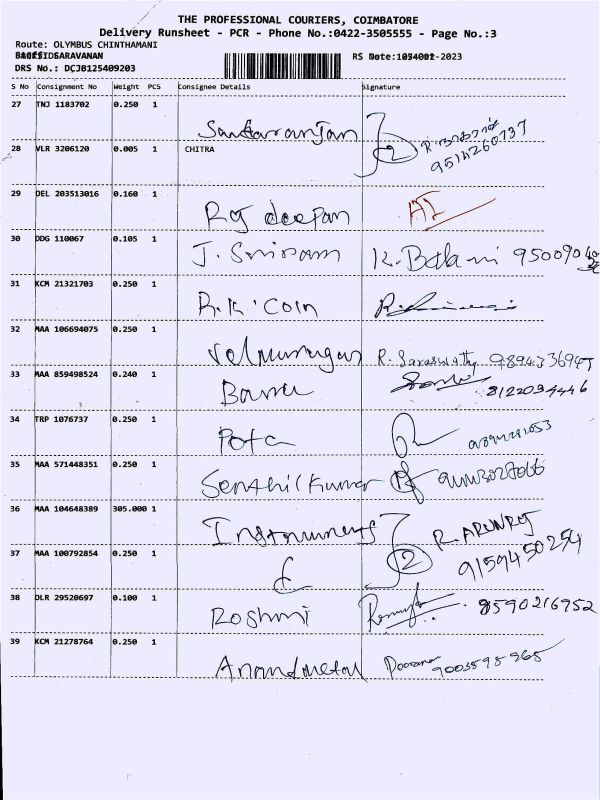 THE PROFESSIONAL COURIERS, COIMBATORE
Delivery Runsheet - PCR - Phone No.:0422-3505555 - Page No.:3
Route: OLYMBUS CHINTHAMANI
SARAVANAN RS Date: -2023
DRS No.: DCJB125409203
S No Consignment No Weight PCS Consignee Details Signature
27 TNJ 1183702 0.250 1 Sankaranjan
28 VLR 3206120 0.005 1 CHITRA 2 9514260737
29 DEL 203513016 0.160 1 Raj deepan
30 DDG 110067 0.105 1 J. Sriram K. Balani
31 KCM 21321703 0.250 1 R.K. Coin
32 MAA 106694075 0.250 1 Velmurugan R. Saraswathy
33 MAA 859498524 0.240 1 8122034446
34 TRP 1076737 0.250 1 Pota
35 MAA 571448351 0.250 1 Senthil Kumar
36 MAA 104648389 305.000 1 Instruments R. ARUNRAJ
37 MAA 100792854 0.250 1 2 9159450254
38 DLR 29520697 0.100 1 Roshni 8590216952
39 KCM 21278764 0.250 1 Anand metal 9003595965